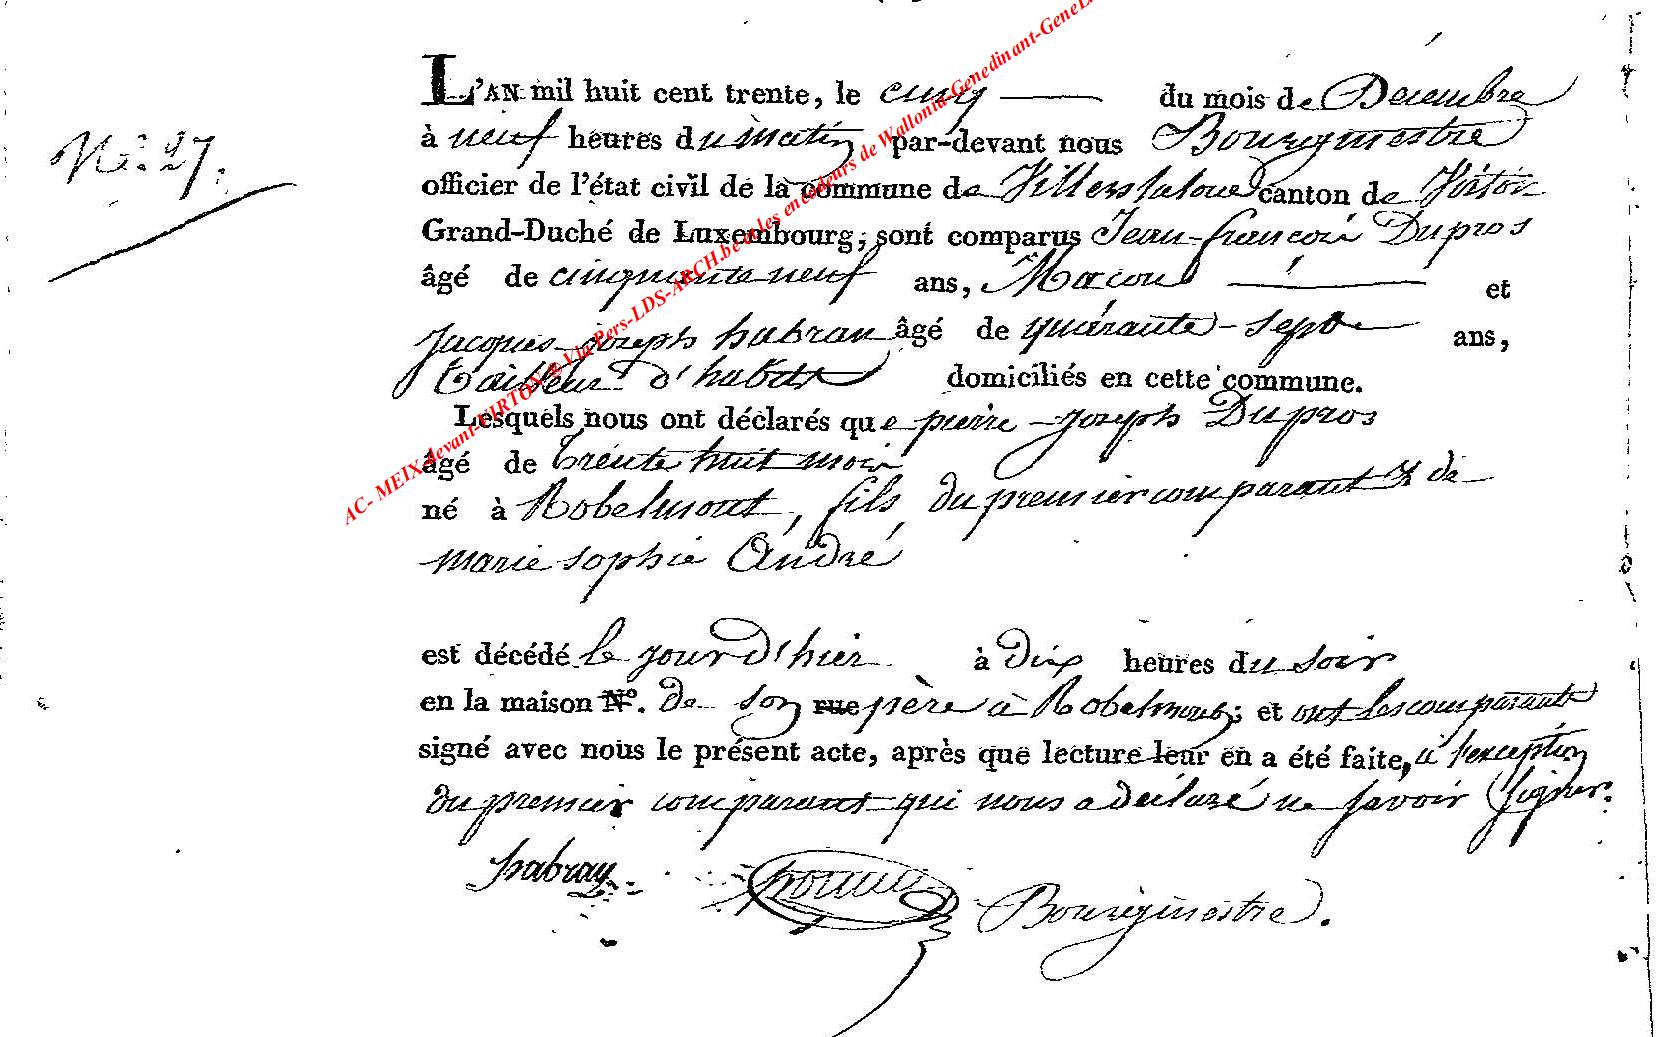 L'AN mil huit cent trente, le cinq du mois de Décembre
N.° 27.
à neuf heures du matin par-devant nous Bourgmestre
officier de l'état civil de la commune de Villerslaloue canton de Virton
Grand-Duché de Luxembourg, sont comparus Jean-françois Dupros
âgé de cinquante neuf ans, Macon et
Jacques-joseph habran âgé de quarante-sept ans,
tailleur d'habits domiciliés en cette commune.
Lesquels nous ont déclarés que pierre-joseph Dupros
âgé de trente huit mois
né à Robelmont, fils du premier comparant & de
marie sophie André
est décédé le jour d'hier à dix heures du soir
en la maison N°. de son rue père à Robelmont; et ont les comparants
signé avec nous le présent acte, après que lecture leur en a été faite, à l'exception
du premier comparant qui nous a déclaré ne savoir signer.
habran
Bourgmestre.
AC- MEIX devant-VIRTON © Via Pers-LDS-ARCH.be et les encodeurs de Wallonia-Genedinant-GeneL